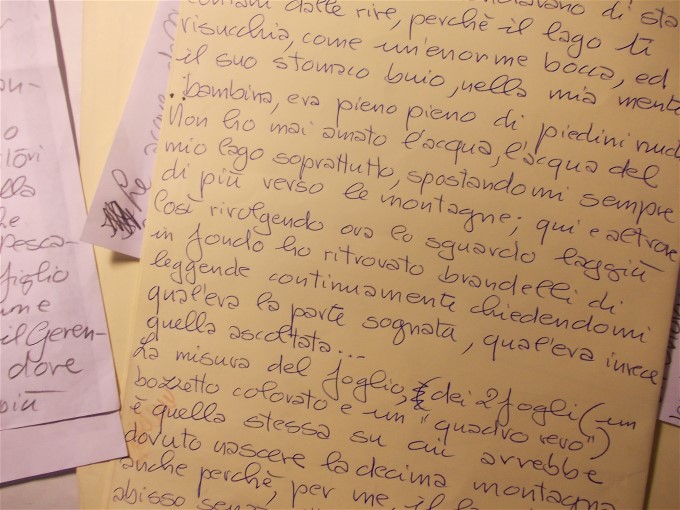 dalle rive, perchè il lago ti
risucchia, come un'enorme bocca, ed
il suo stomaco buio, nella mia mente
bambina, era pieno pieno di piedini nudi
Non ho mai amato l'acqua, l'acqua del
mio lago soprattutto, spostandomi sempre
di più verso le montagne; qui e altrove
Così rivolgendo ora lo sguardo laggiù
in fondo ho ritrovato brandelli di
leggende continuamente chiedendomi
qual'era la parte sognata, qual'era invece
quella ascoltata...
La misura del foglio, dei 2 fogli (un
bozzetto colorato e un "quadro vero")
è quella stessa su cui avrebbe
dovuto nascere la decima montagna
anche perchè, per me, il
abisso
Le
pesca-
figlio
il Geren-
dove
più